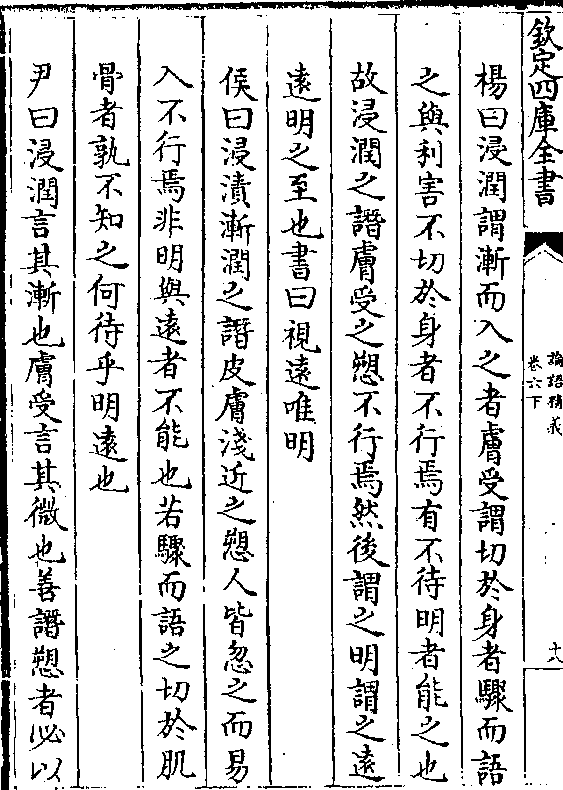 欽定四庫全書
論語精義
卷六下
十八
楊曰浸潤謂漸而入之者膚受謂切於身者驟而語
之與利害不切於身者不行焉有不待明者能之也
故浸潤之譖膚受之愬不行焉然後謂之明謂之遠
遠明之至也書曰視遠唯明
侯曰浸漬漸潤之譖皮膚淺近之愬人皆忽之而易
入不行焉非明與遠者不能也若驟而語之切於肌
骨者孰不知之何待乎明遠也
尹曰浸潤言其漸也膚受言其微也善譖愬者必以